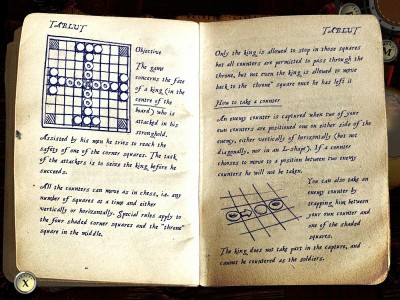 TABLUT
Objective
The game
concerns the fate
of a king (in the
centre of the
board) who is
attacked in his
stronghold.
Assisted by his men he tries to reach the
safety of one of the corner squares. The task
of the attackers is to seize the king before he
succeeds.
All the counters can move as in chess, i.e. any
number of squares at a time and either
vertically or horizontally. Special rules apply to
the four shaded corner squares and the "throne"
square in the middle.
TABLUT
Only the king is allowed to stop in those squares
but all counters are permitted to pass through the
throne, but not even the king is allowed to move
back to the throne square once he has left it
How to take a counter
An enemy counter is captured when two of your
own counters are positioned one on either side of the
enemy, either vertically of horizontally (but not
diagonally, nor in an L-shape). If a counter
chooses to move to a position between two enemy
counters he will not be taken.
You can also take an
enemy counter by
trapping him between
your own counter and
one of the shaded
squares.
The king does not take part in the capture, and
cannot be countered as the soldiers.
X
M